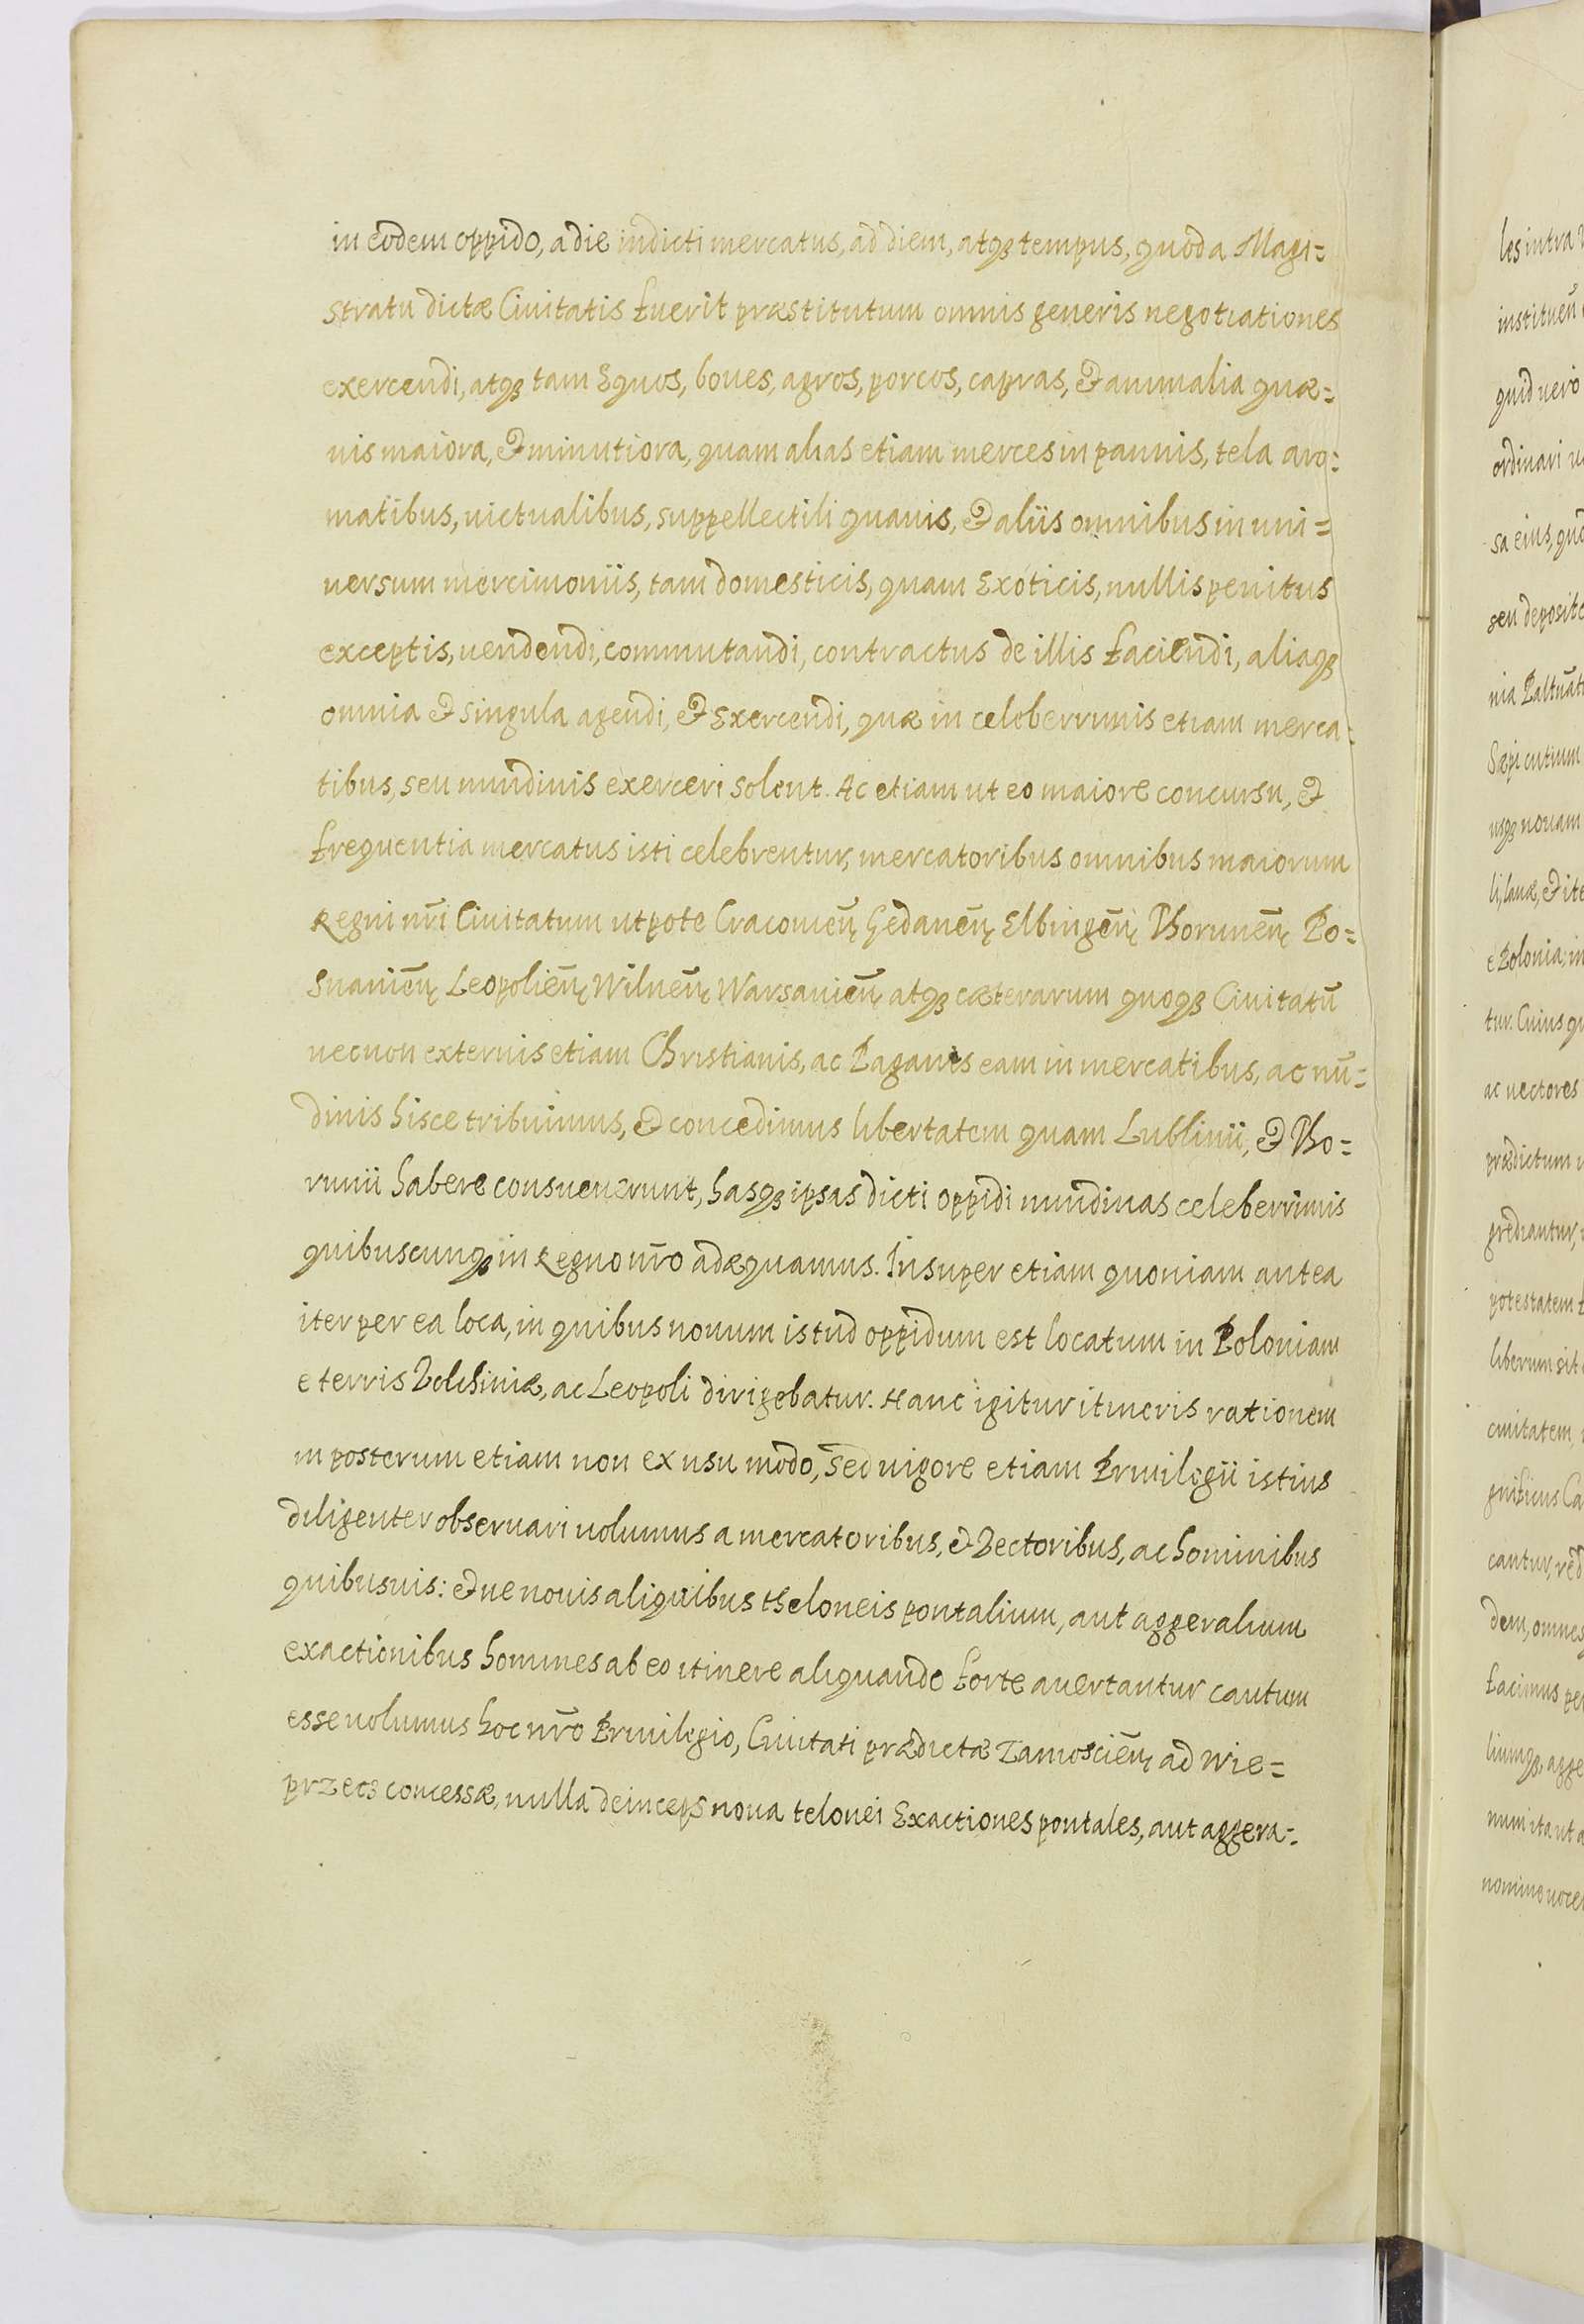 in eodem oppido, a die indicti mercatus, ad diem, atq3 tempus, quod a Magi=
stratu dictæ Ciuitatis fuerit præstitutum omnis generis negotiationes
exercendi, atq3 tam Equos, boues, agros, porcos, capras, & animalia quæ=
uis maiora, & minutiora, quam alias etiam merces in pannis, tela aro=
matibus, uictualibus, suppellectili quauis, & aliis omnibus in uni=
uersum mercimoniis, tam domesticis, quam Exoticis, nullis penitus
exceptis, uendendi, commutandi, contractus de illis faciendi, aliaq3
omnia & singula agendi, & Exercendi, quæ in celeberrimis etiam merca=
tibus, seu nundinis exerceri solent. Ac etiam ut eo maiore concursu, &
frequentia mercatus isti celebrentur, mercatoribus omnibus maiorum
Regni nr̄i Ciuitatum utpote Cracouien̄ Gedanen̄ Elbingen̄ Thorunen̄ Po=
snanien̄ Leopolien̄ Wilnen̄ Warsauien̄ atq3 cæterarum quoq3 Ciuitatū
necnon externis etiam Christianis, ac Paganis eam in mercatibus, ac nū=
dinis hisce tribuimus, & concedimus libertatem quam Lublinii, & Tho=
runii habere consueuerunt, hasq3 ipsas dicti oppidi nundinas celeberrimis
quibuscunq3 in Regno nr̄o adæquamus. Insuper etiam quoniam antea
iter per ea loca, in quibus nouum istud oppidum est locatum in Poloniam
e terris Volhiniæ, ac Leopoli dirigebatur. Hanc igitur itineris rationem
in posterum etiam non ex usu modo, sed uigore etiam Priuilegii istius
diligenter obseruari uolumus a mercatoribus, & Vectoribus, ac hominibus
quibusuis: & ne nouis aliquibus theloneis pontalium, aut aggeralium
exactionibus homines ab eo itinere aliquando forte auertantur cautum
esse uolumus hoc nr̄o Priuilegio, Ciuitati prædictæ Zamoscien̄ ad Wie=
przecz concessæ, nulla deinceps noua telonei Exactiones pontales, aut aggera=
les intra
quid uero
ordinari
sa eius, quo
e Polonia, in
tur. Cuius qu
ac uectores
prædictum
grediantur,
potestatem
liberum sit
ciuitatem,
dem, omnes
facimus pe